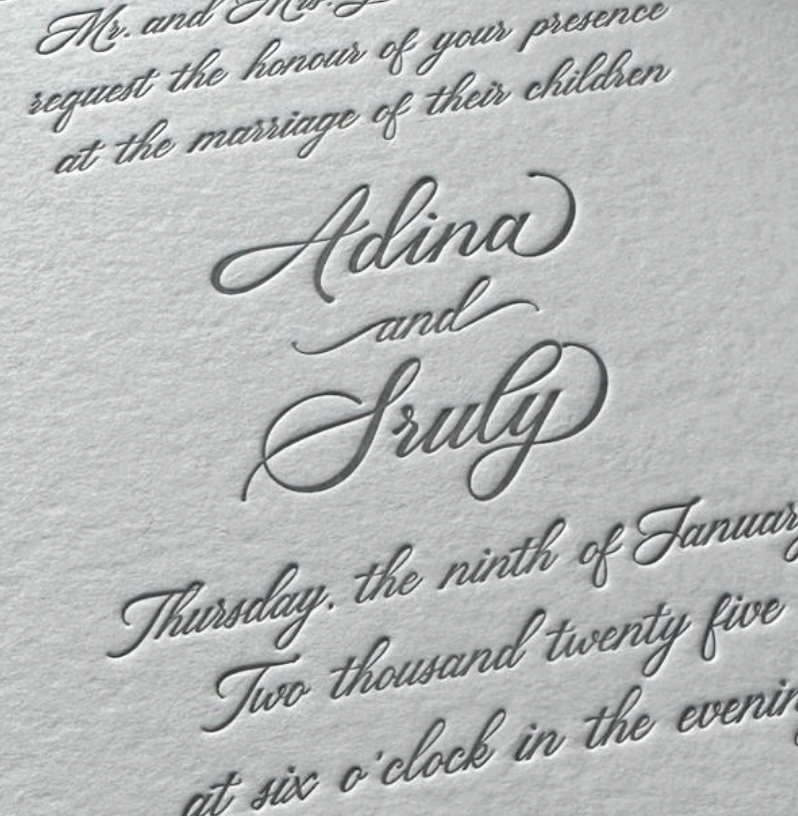 Mr. and Mrs.
request the honour of your presence
at the marriage of their children
Adina
and
Sruly
Thursday, the ninth of January
Two thousand twenty five
at six o'clock in the evening